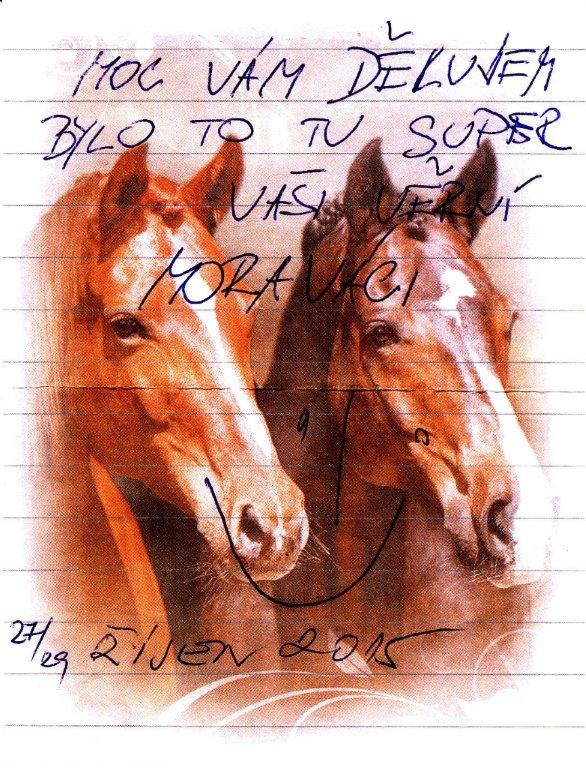 MOC VÁM DĚKUJEM
BYLO TO TU SUPER
VAŠI VĚRNÍ
MORAVÁCI
27/29 ŘÍJEN 2015